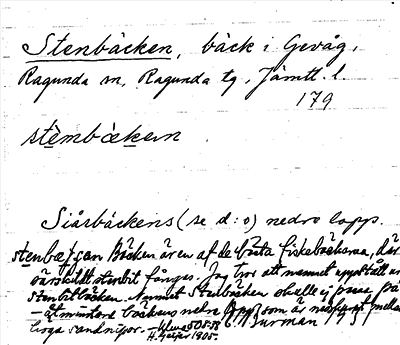 Stenbäcken, bäck i Gevåg,
Ragunda sn, Ragunda tg, Jämtl. l.
179
stèmbækem
Siårsbäckens (se d:o) nedre lopp.
Bäcken är en af de bästa fiskebäckarna, där
särskildt stenbit fånges. Jag tror att namnet uppstått ur
stenbitbäcken. Namnet Stenbäcken skulle ej passa på
– åtminstone bäckens nedre lopp som är
liga sandnipor. –
H. Geijer 1905. Burman